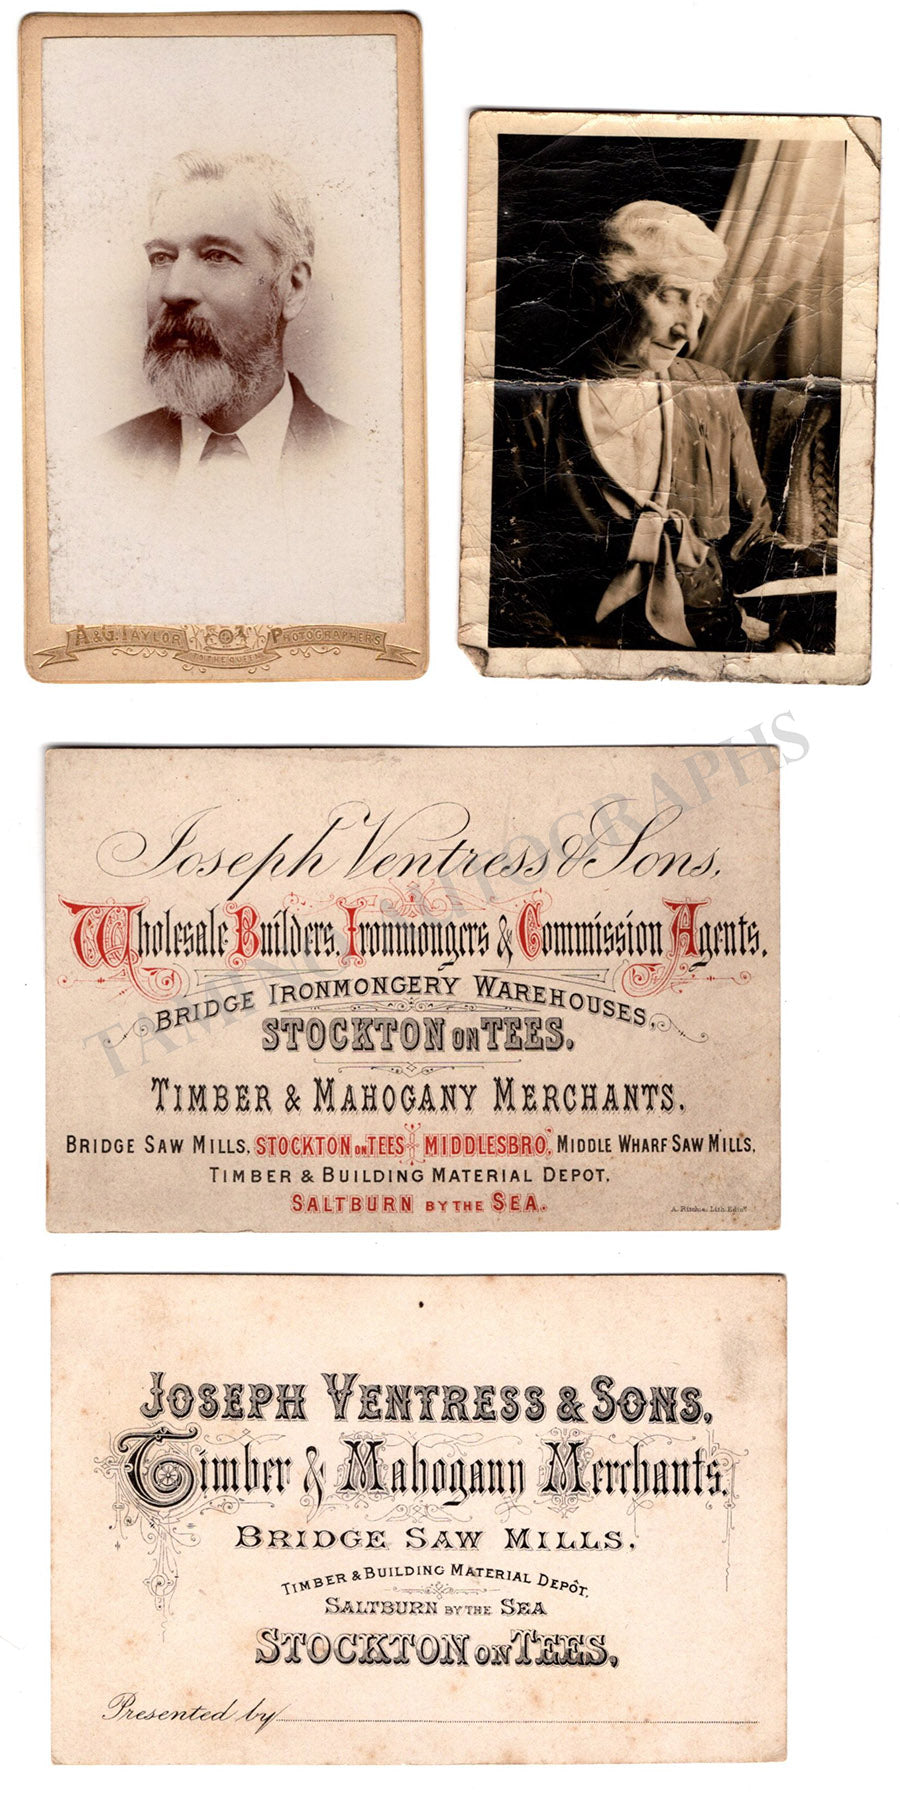 A & G. TAYLOR PHOTOGRAPHERS
TO THE QUEEN
TAMINO AUTOGRAPHS
Joseph Ventress & Sons,
Wholesale Builders, Ironmongers & Commission Agents.
BRIDGE IRONMONGERY WAREHOUSES,
STOCKTON ON TEES.
TIMBER & MAHOGANY MERCHANTS.
BRIDGE SAW MILLS, STOCKTON ON TEES MIDDLESBRO', MIDDLE WHARF SAW MILLS,
TIMBER & BUILDING MATERIAL DEPOT,
SALTBURN BY THE SEA.
A. Ritchie, Lith. Edinr.
JOSEPH VENTRESS & SONS,
Timber & Mahogany Merchants.
BRIDGE SAW MILLS,
TIMBER & BUILDING MATERIAL DEPÔT,
SALTBURN BY THE SEA
STOCKTON ON TEES,
Presented by